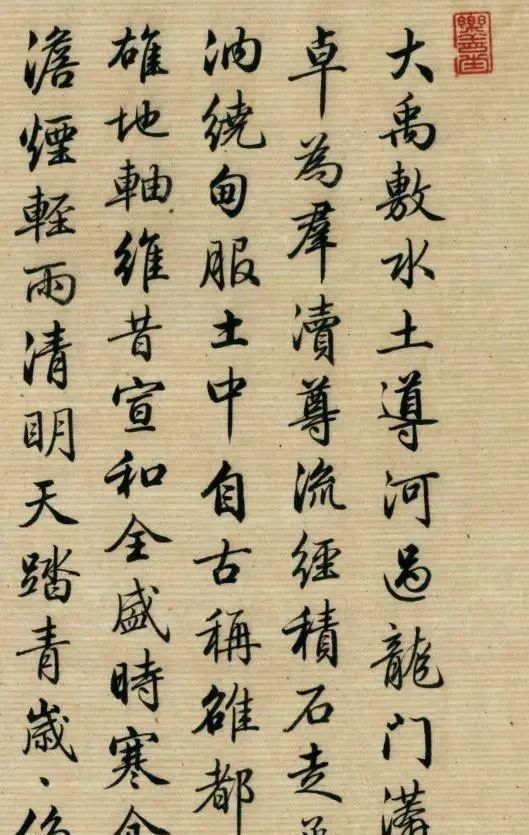 大禹敷水土導河過龍門
卓為羣瀆尊流經積石走
汭繞甸服土中自古稱雄都
雄地軸維昔宣和全盛時寒
澹煙輕雨清明天踏青歲〻